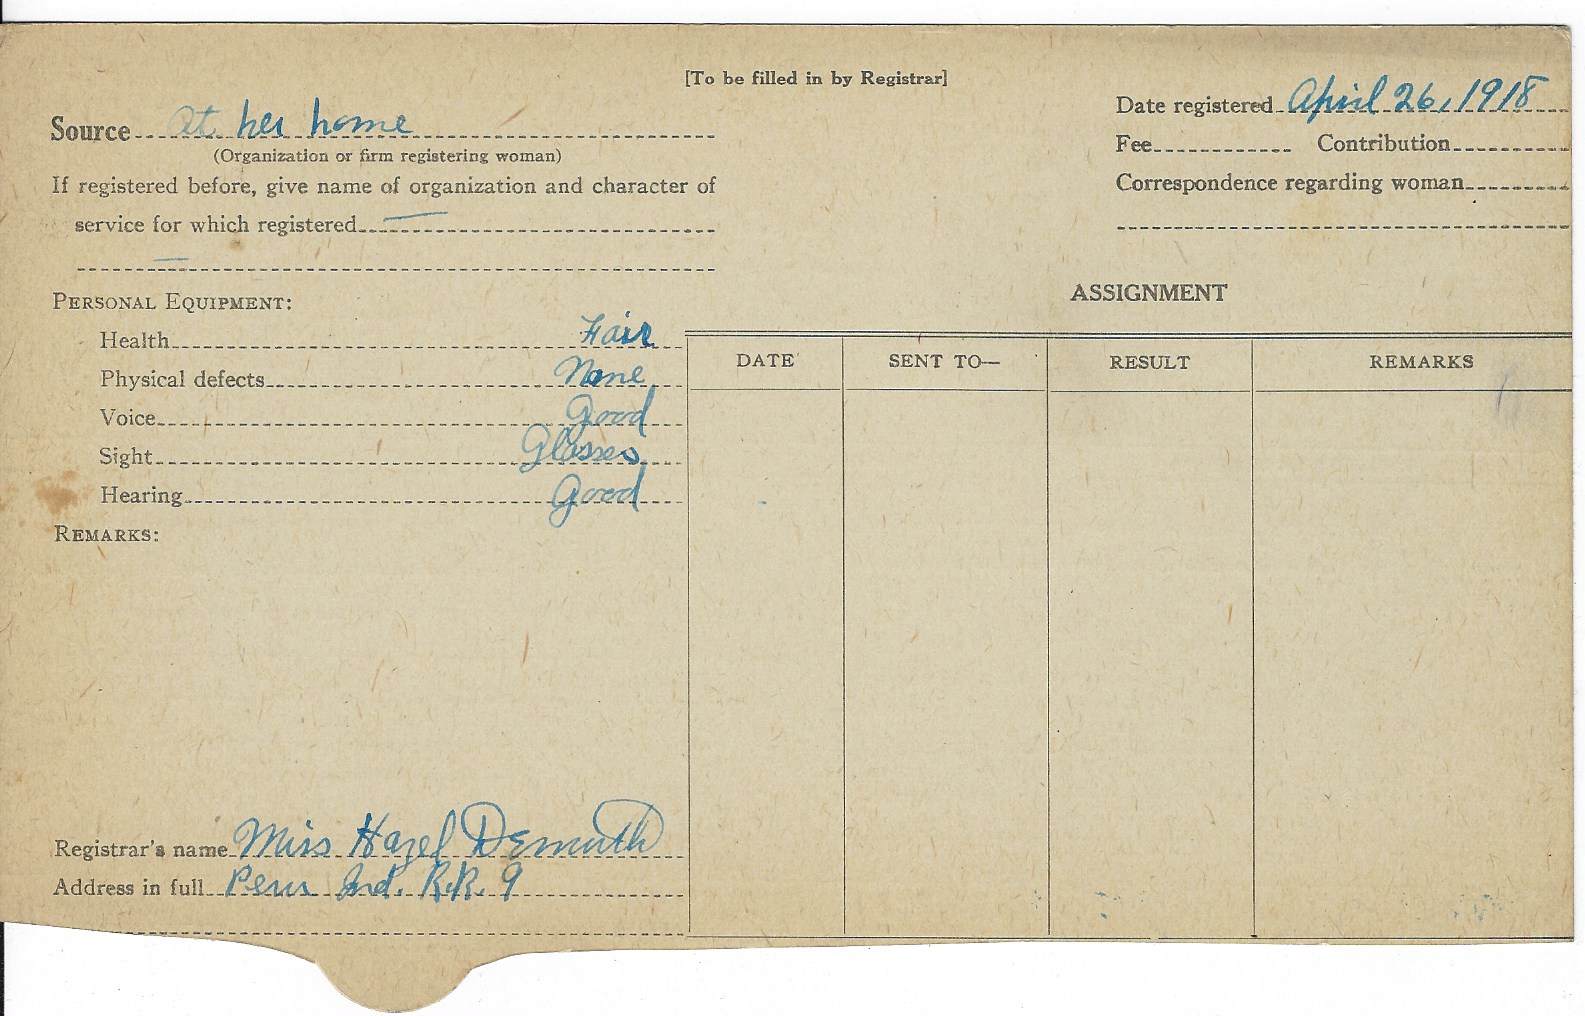 [To be filled in by Registrar]
Source At her home
(Organization or firm registering woman)
If registered before, give name of organization and character of
service for which registered —
—
Date registered April 26, 1918
Fee Contribution
Correspondence regarding woman
PERSONAL EQUIPMENT:
Health Fair
Physical defects None
Voice Good
Sight Glasses
Hearing Good
REMARKS:
Registrar's name Miss Hazel Demuth
Address in full Peru Ind. R.R. 9
ASSIGNMENT
DATE SENT TO— RESULT REMARKS